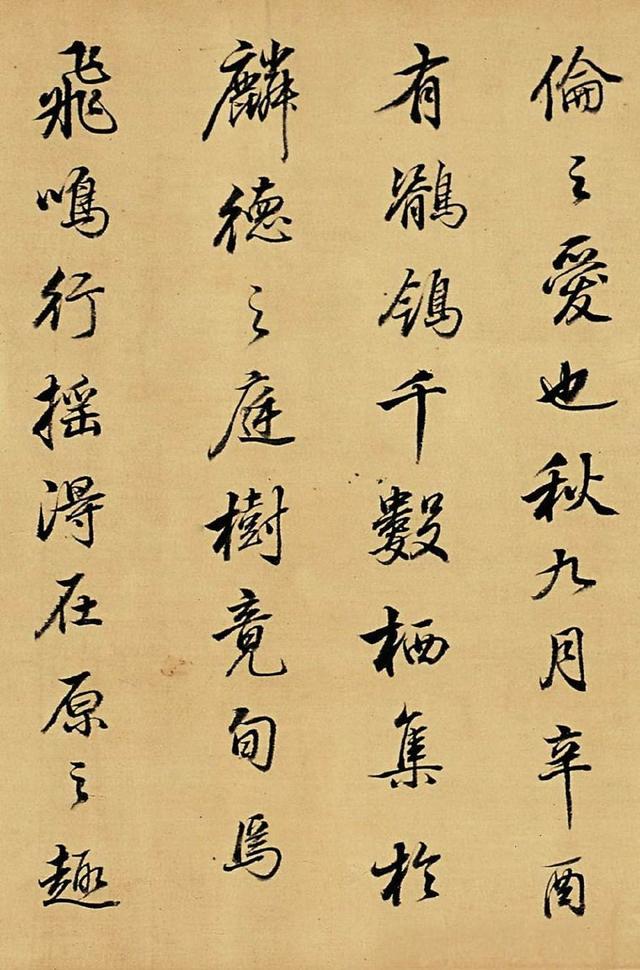 倫之愛也秋九月辛酉
有鶺鴒千數栖集於
麟德之庭樹竟旬焉
飛鳴行搖得在原之趣